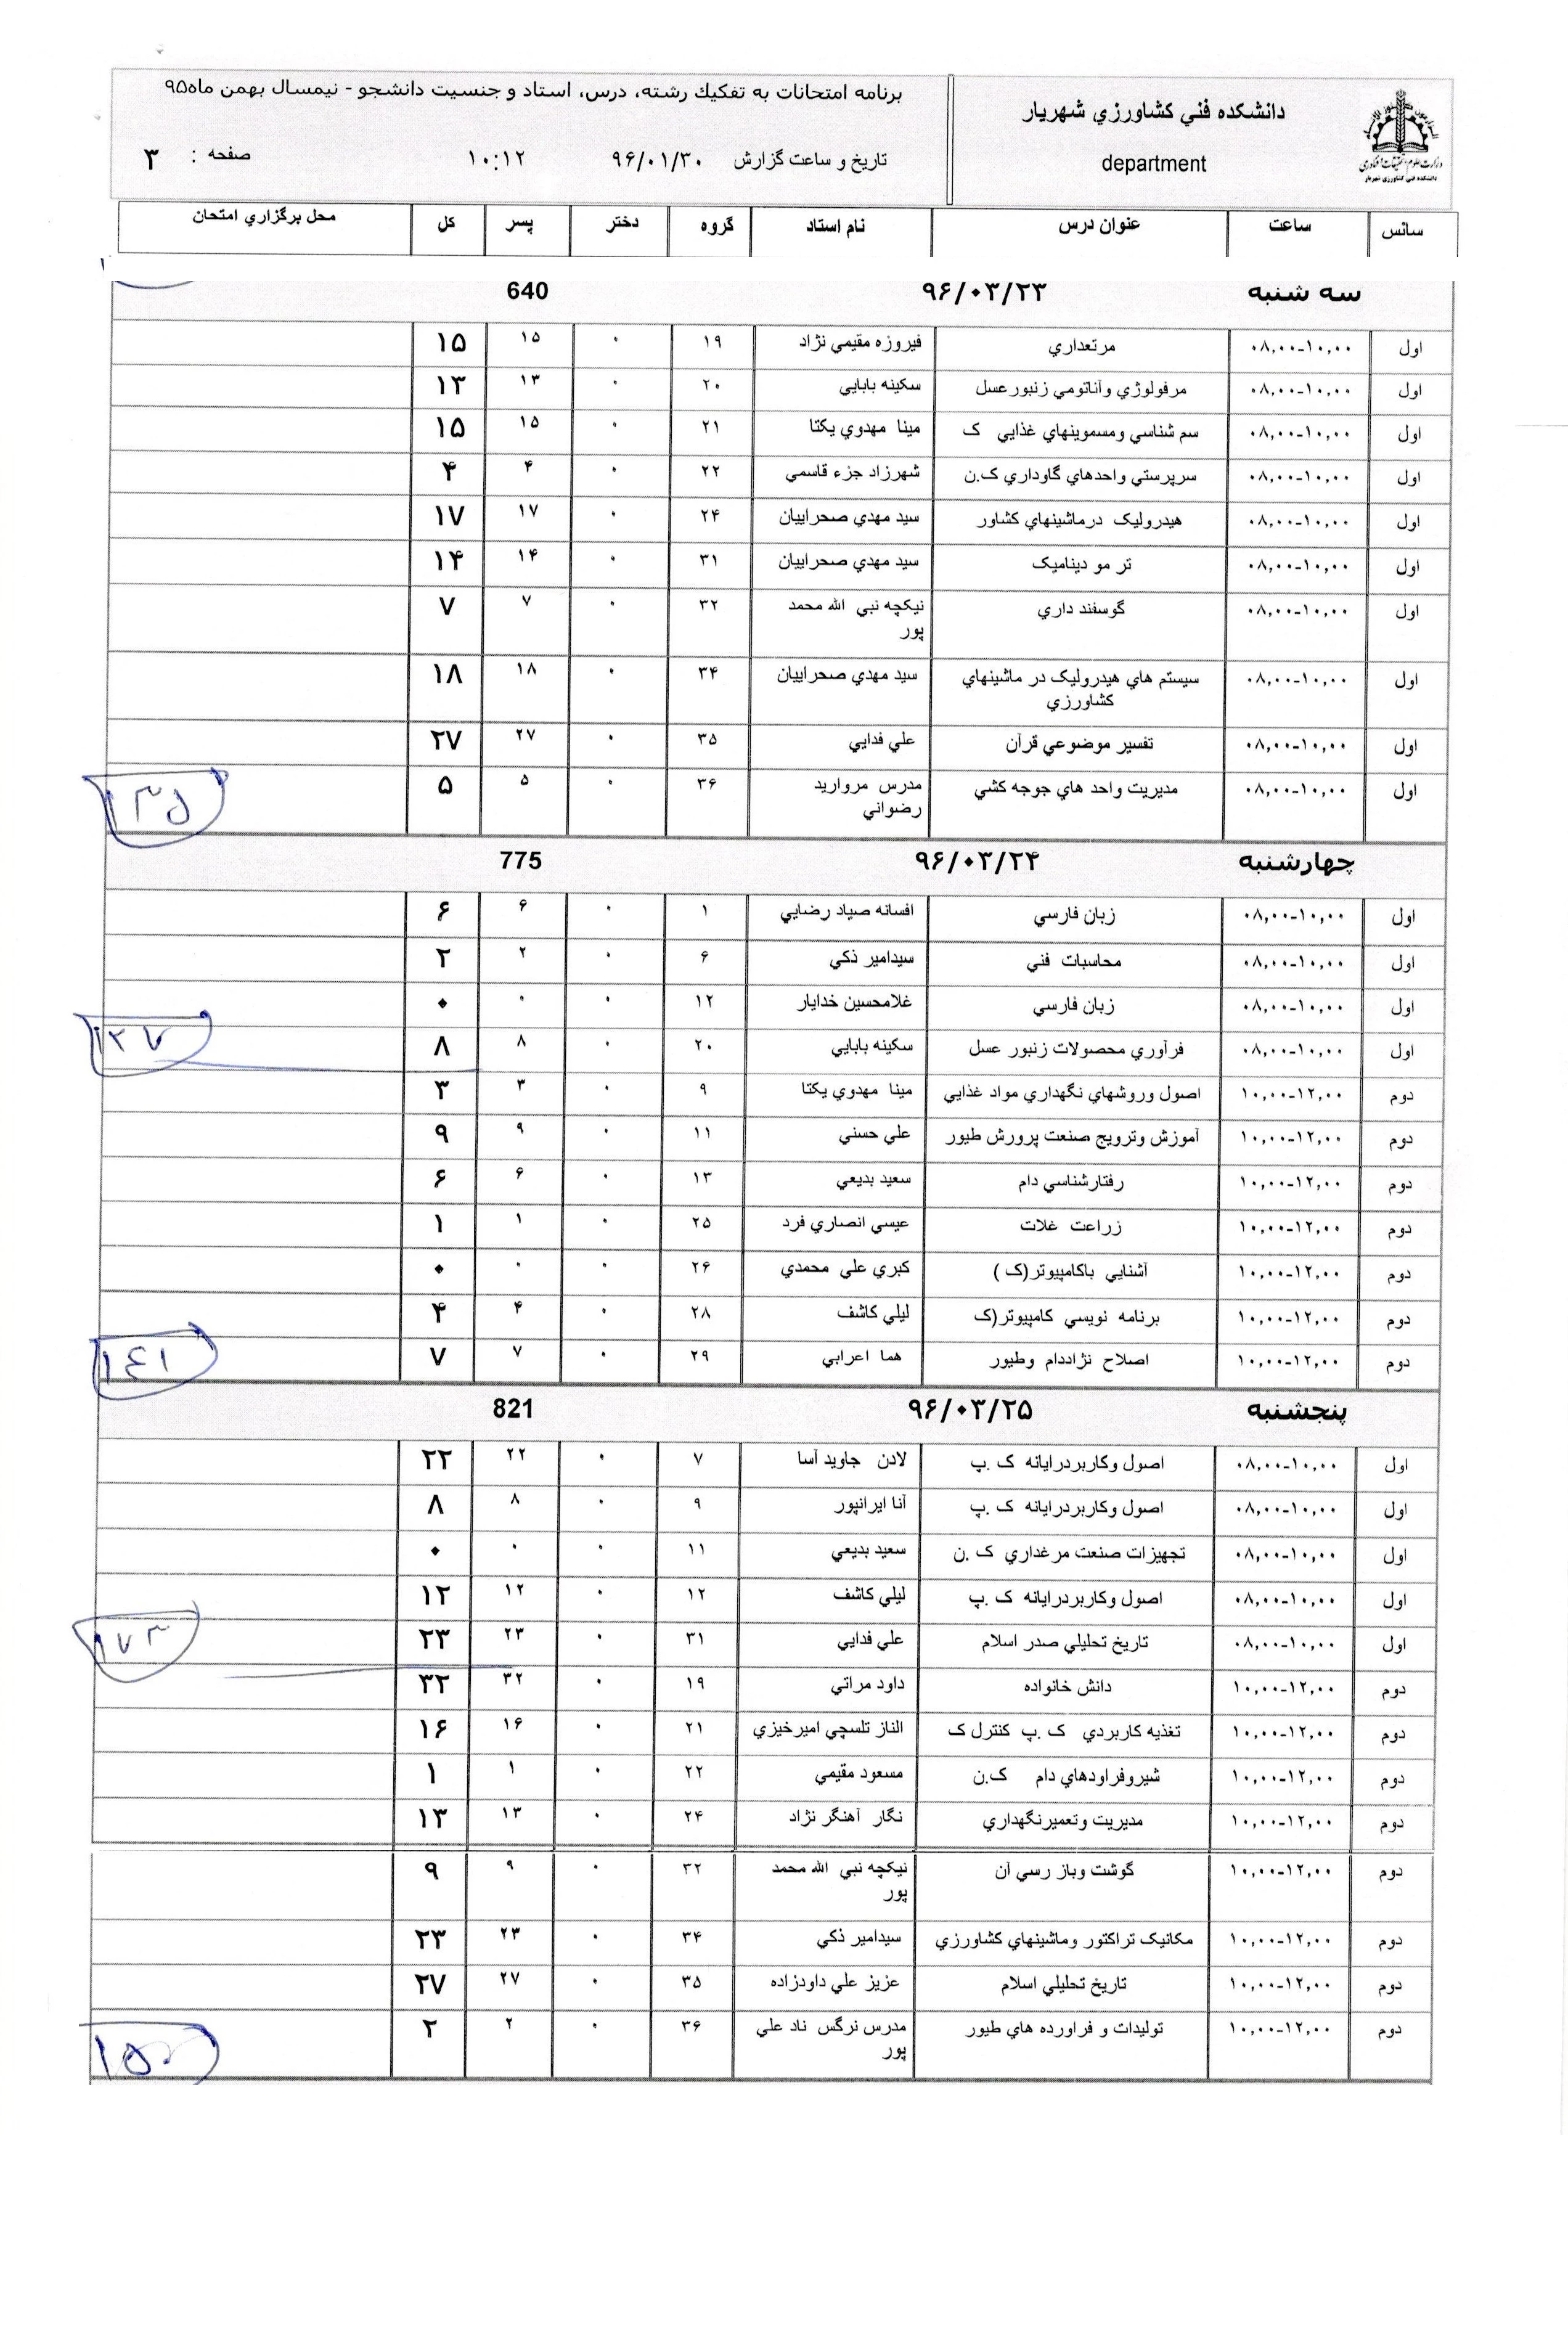 دانشكده فني كشاورزي شهريار
department
برنامه امتحانات به تفكيك رشته، درس، استاد و جنسيت دانشجو - نيمسال بهمن ماه۹۵
تاريخ و ساعت گزارش ۹۶/۰۱/۳۰ ۱۰:۱۲ صفحه : ۳
وزارت علوم، تحقيقات و فناوري
دانشكده فني كشاورزي شهريار
سانس ساعت عنوان درس نام استاد گروه دختر پسر كل محل برگزاري امتحان
سه شنبه ۹۶/۰۳/۲۳ 640
اول ۰۸,۰۰-۱۰,۰۰ مرتعداري فيروزه مقيمي نژاد ۱۹ ۰ ۱۵ ۱۵
اول ۰۸,۰۰-۱۰,۰۰ مرفولوژي وآناتومي زنبورعسل سكينه بابايي ۲۰ ۰ ۱۳ ۱۳
اول ۰۸,۰۰-۱۰,۰۰ سم شناسي ومسموينهاي غذايي ک مينا مهدوي يكتا ۲۱ ۰ ۱۵ ۱۵
اول ۰۸,۰۰-۱۰,۰۰ سرپرستي واحدهاي گاوداري ک.ن شهرزاد جزء قاسمي ۲۲ ۰ ۴ ۴
اول ۰۸,۰۰-۱۰,۰۰ هيدروليک درماشينهاي كشاور سيد مهدي صحراييان ۲۴ ۰ ۱۷ ۱۷
اول ۰۸,۰۰-۱۰,۰۰ تر مو ديناميک سيد مهدي صحراييان ۳۱ ۰ ۱۴ ۱۴
اول ۰۸,۰۰-۱۰,۰۰ گوسفند داري نيكچه نبي الله محمد ۳۲ ۰ ۷ ۷
پور
اول ۰۸,۰۰-۱۰,۰۰ سيستم هاي هيدروليک در ماشينهاي سيد مهدي صحراييان ۳۴ ۰ ۱۸ ۱۸
كشاورزي
اول ۰۸,۰۰-۱۰,۰۰ تفسير موضوعي قرآن علي فدايي ۳۵ ۰ ۲۷ ۲۷
اول ۰۸,۰۰-۱۰,۰۰ مديريت واحد هاي جوجه كشي مدرس مرواريد ۳۶ ۰ ۵ ۵
رضواني
چهارشنبه ۹۶/۰۳/۲۴ 775
اول ۰۸,۰۰-۱۰,۰۰ زبان فارسي افسانه صياد رضايي ۱ ۰ ۶ ۶
اول ۰۸,۰۰-۱۰,۰۰ محاسبات فني سيدامير ذكي ۶ ۰ ۲ ۲
اول ۰۸,۰۰-۱۰,۰۰ زبان فارسي غلامحسين خدايار ۱۲ ۰ ۰ ۰
اول ۰۸,۰۰-۱۰,۰۰ فرآوري محصولات زنبور عسل سكينه بابايي ۲۰ ۰ ۸ ۸
دوم ۱۰,۰۰-۱۲,۰۰ اصول وروشهاي نگهداري مواد غذايي مينا مهدوي يكتا ۹ ۰ ۳ ۳
دوم ۱۰,۰۰-۱۲,۰۰ آموزش وترويج صنعت پرورش طيور علي حسني ۱۱ ۰ ۹ ۹
دوم ۱۰,۰۰-۱۲,۰۰ رفتارشناسي دام سعيد بديعي ۱۳ ۰ ۶ ۶
دوم ۱۰,۰۰-۱۲,۰۰ زراعت غلات عيسي انصاري فرد ۲۵ ۰ ۱ ۱
دوم ۱۰,۰۰-۱۲,۰۰ آشنايي باكامپيوتر(ک ) كبري علي محمدي ۲۶ ۰ ۰ ۰
دوم ۱۰,۰۰-۱۲,۰۰ برنامه نويسي كامپيوتر(ک ليلي كاشف ۲۸ ۰ ۴ ۴
دوم ۱۰,۰۰-۱۲,۰۰ اصلاح نژاددام وطيور هما اعرابي ۲۹ ۰ ۷ ۷
۱۴۱
پنجشنبه ۹۶/۰۳/۲۵ 821
اول ۰۸,۰۰-۱۰,۰۰ اصول وكاربردرايانه ک .پ لادن جاويد آسا ۷ ۰ ۲۲ ۲۲
اول ۰۸,۰۰-۱۰,۰۰ اصول وكاربردرايانه ک .پ آنا ايرانپور ۹ ۰ ۸ ۸
اول ۰۸,۰۰-۱۰,۰۰ تجهيزات صنعت مرغداري ک .ن سعيد بديعي ۱۱ ۰ ۰ ۰
اول ۰۸,۰۰-۱۰,۰۰ اصول وكاربردرايانه ک .پ ليلي كاشف ۱۲ ۰ ۱۲ ۱۲
اول ۰۸,۰۰-۱۰,۰۰ تاريخ تحليلي صدر اسلام علي فدايي ۳۱ ۰ ۲۳ ۲۳
۱۷۳
دوم ۱۰,۰۰-۱۲,۰۰ دانش خانواده داود مراتي ۱۹ ۰ ۳۲ ۳۲
دوم ۱۰,۰۰-۱۲,۰۰ تغذيه كاربردي ک .پ كنترل ک الناز تلسچي اميرخيزي ۲۱ ۰ ۱۶ ۱۶
دوم ۱۰,۰۰-۱۲,۰۰ شيروفراودهاي دام ک.ن مسعود مقيمي ۲۲ ۰ ۱ ۱
دوم ۱۰,۰۰-۱۲,۰۰ مديريت وتعميرنگهداري نگار آهنگر نژاد ۲۴ ۰ ۱۳ ۱۳
دوم ۱۰,۰۰-۱۲,۰۰ گوشت وباز رسي آن نيكچه نبي الله محمد ۳۲ ۰ ۹ ۹
پور
دوم ۱۰,۰۰-۱۲,۰۰ مكانيک تراكتور وماشينهاي كشاورزي سيدامير ذكي ۳۴ ۰ ۲۳ ۲۳
دوم ۱۰,۰۰-۱۲,۰۰ تاريخ تحليلي اسلام عزيز علي داودزاده ۳۵ ۰ ۲۷ ۲۷
دوم ۱۰,۰۰-۱۲,۰۰ توليدات و فراورده هاي طيور مدرس نرگس ناد علي ۳۶ ۰ ۲ ۲
پور